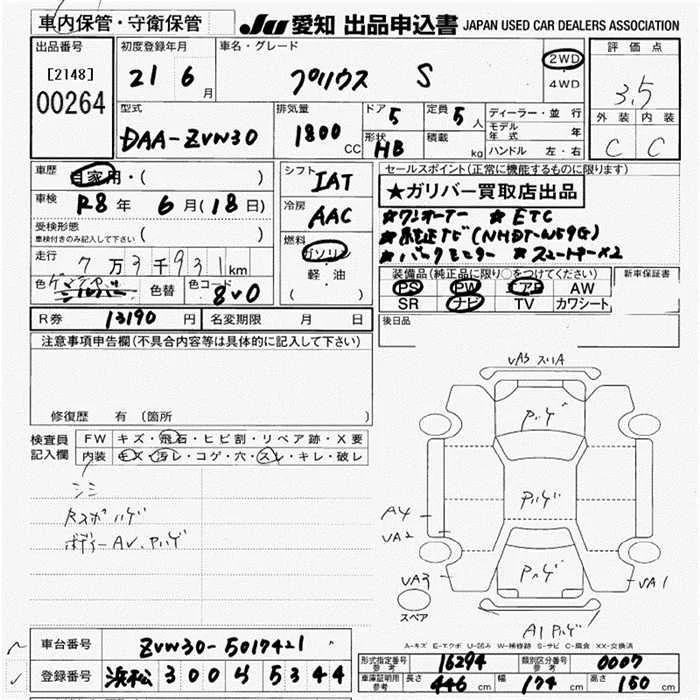 車内保管・守衛保管
JU 愛知 出品申込書 JAPAN USED CAR DEALERS ASSOCIATION
出品番号
[2148]
00264
初度登録年月
21 6月
車名・グレード
プリウス S
2WD
・
4WD
評価点
3.5
外装 内装
C C
型式
DAA-ZVW30
排気量
1800 CC
ドア 5
形状 HB
定員 5人
積載 kg
ディーラー・並行
モデル年式 年
ハンドル 左・右
車歴
自家用・( )
車検
R8年 6月(18日)
受検形態
車検付きのみ記入して下さい ( )
走行
7万3千931km
色
シルバー
色替
色コード
8V0
シフト
IAT
冷房
AAC
燃料
ガソリン
軽・油
( )
セールスポイント(正常に機能するものに限ります)
★ガリバー買取店出品
★ワンオーナー ★ETC
★純正ナビ(NHDT-W59G)
★バックモニター ★スマートキー×2
装備品(純正品に限り○をつけてください)
PS PW エアB AW
SR ナビ TV カワシート
新車保証書
後日品
R券 13190円
名変期限 月 日
注意事項申告欄(不具合内容等は具体的に記入して下さい)
修復歴 有(箇所
検査員
記入欄
FW キズ・飛石・ヒビ割・リペア跡・X要
内装 キズ・汚レ・コゲ・穴・スレ・キレ・破レ
シミ
Rスポハゲ
ボディーAV、Pハゲ
VA3 スリA
Pハゲ
Pハゲ
A4
VA2
Pハゲ
VA3
VA1
スペア
A1 Pハゲ
A-キズ E-エクボ U-凹み W-補修跡 S-サビ C-腐食 XX-交換済
車台番号 ZVW30-5017421
登録番号 浜松 300 さ 5344
型式指定番号 参考 16294
類別区分番号 参考 0007
車庫証明用 参考 長さ 446cm 幅 174cm 高さ 150cm